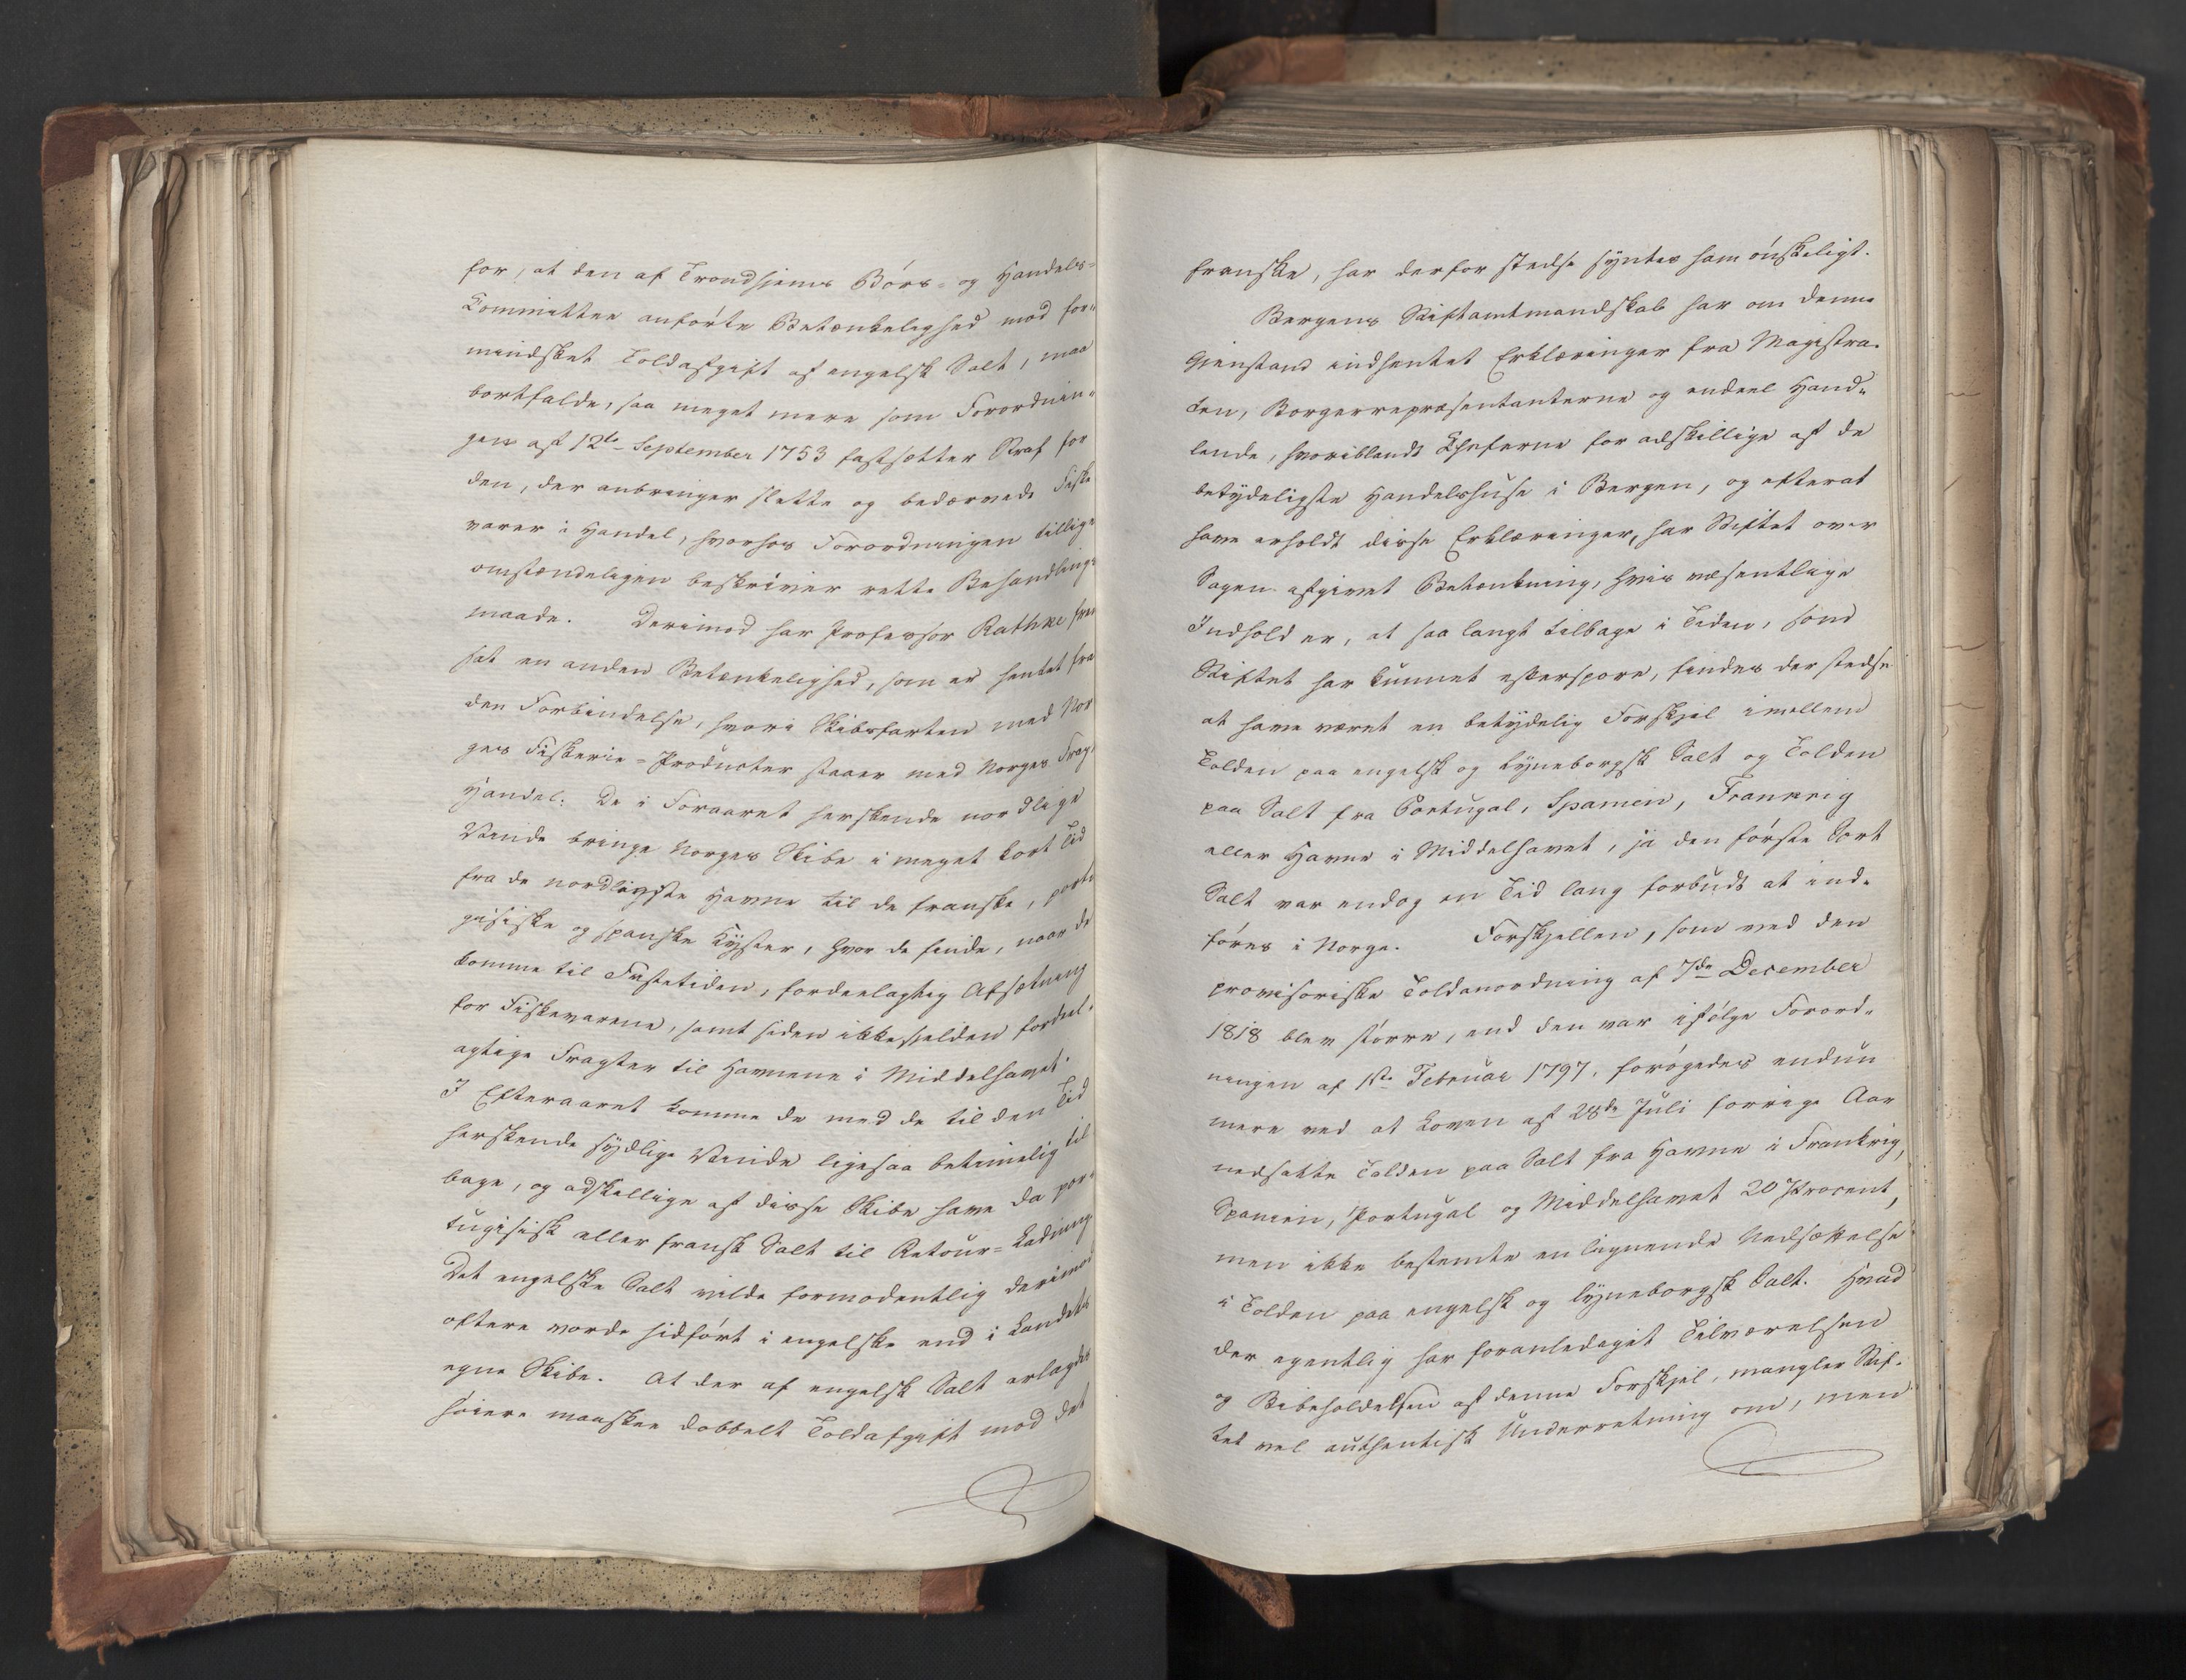 for, at den af Trondhjems Börs- og Handels-
Committee anförte Betænkelighed mod for-
mindsket Toldafgift af engelsk Salt, maa
bortfalde, saa meget mere som Forordnin-
gen af 12te September 1753 fastsætter Straf for
den, der anbringer slette og bedærvede Fiske
varer i Handel, hvorhos Forordningen tillige
omstændeligen beskriver rette Behandlings
maade. Derimod har Professor Rathke frem
sat en anden Betænkelighed, som er hentet fra
den Forbindelse, hvori Skibsfarten med Nor
ges Fiskerie-Producter staaer med Norges Fragt
Handel: De i Foraaret herskende nordlige
Vinde bringe Norges Skibe i meget kort Tid
fra de nordligste Havne til de franske, portu
gisiske og spanske Kyster, hvor de finde, naar de
komme til Fastetiden, fordeelagtig Afsætning
for Fiskevarene, samt siden ikke sjelden fordeel-
agtige Fragter til Havnene i Middelhavet.
I Efteraaret komme de med de til den Tid
herskende sydlige Vinde ligesaa betimelig til
bage, og adskillige af disse Skibe have da por-
tugisisk eller fransk Salt til Retour-Ladning
Det engelske Salt vilde formodentlig derimod
oftere vorde hidfört i engelske end i Landets
egne Skibe. At der af engelsk Salt erlagdes
höiere maaskee dobbelt Toldafgift mod det
franske, har derfor stedse syntes ham önskeligt.
Bergens Stiftamtmandskab har om denne
Gjenstand indhentet Erklæringer fra Magistra-
ten, Borgerrepræsentanterne og endeel Hand-
lende, hvoriblandt Cheferne for adskillige af de
betydeligste Handelshuse i Bergen, og efterat
have erholdt disse Erklæringer, har Stiftet over
Sagen afgivet Betænkning, hvis væsentlige
Indhold er, at saa langt tilbage i Tiden, som
Stiftet har kunnet efterspore, findes der stedse
at have været en betydelig Forskjel imellem
Tolden paa engelsk og lyneborgsk Salt og Tolden
paa Salt fra Portugal, Spanien, Frankrig
eller Havne i Middelhavet, ja den förste Sort
Salt var endog en Tid lang forbudt at ind-
föres i Norge. Forskjellen, som ved den
provisoriske Toldanordning af 7de December
1818 blev större, end den var ifölge Forord-
ningen af 1ste Februar 1797, forögedes endnu
mere ved at Loven af 28de Juli forrige Aar
nedsatte Tolden paa Salt fra Havne i Frankrig,
Spanien, Portugal og Middelhavet 20 Procent,
men ikke bestemte en lignende Nedsættelse
i Tolden paa engelsk og lyneborgsk Salt. Hvad
der egentlig har foranlediget Tilværelsen
og Bibeholdelsen af denne Forskjel, mangler Stif-
tet vel authentisk Underretning om, men